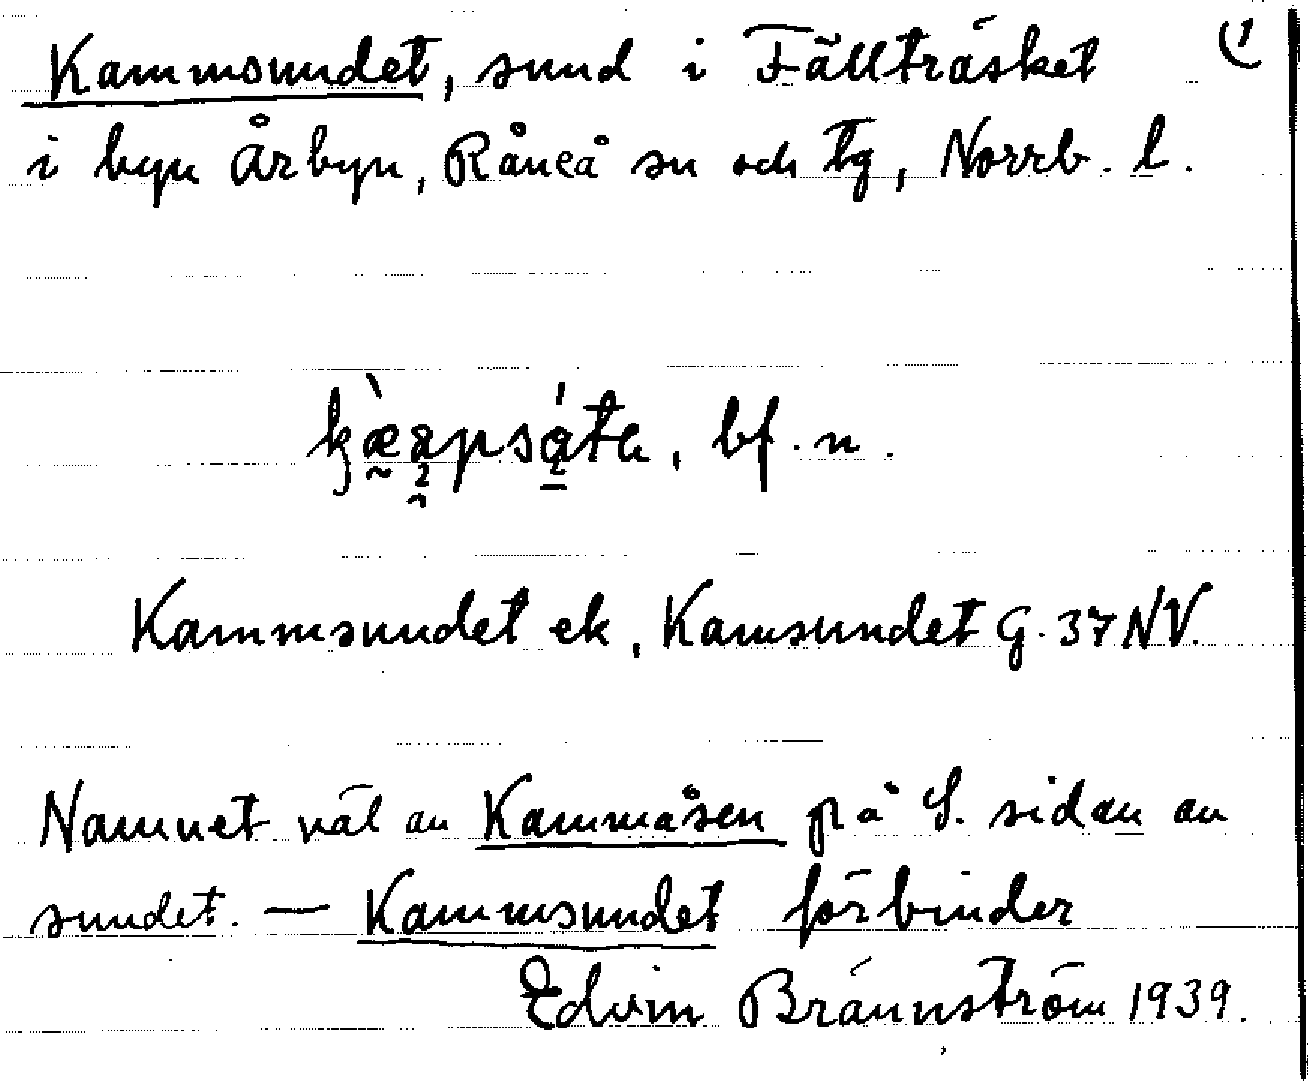 Kammsundet, sund i Fällträsket (1
i byn Årbyn, Råneå sn och tg, Norrb. l.
bf. n.
Kammsundet ek, Kamsundet G. 37 NV.
Namnet väl av Kammåsen på S. sidan av
sundet. — Kammsundet förbinder
Edvin Brännström 1939.